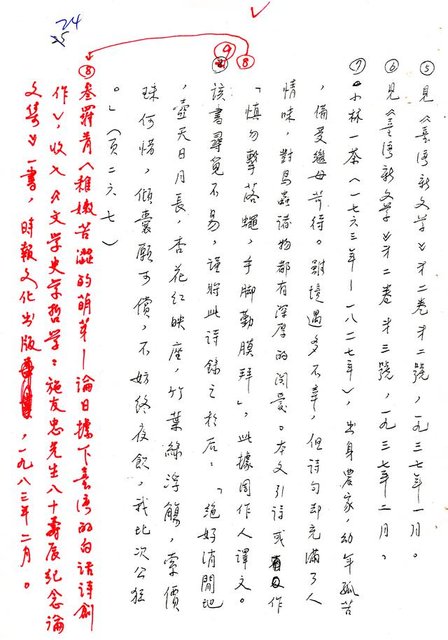 24
25
⑤見《臺灣新文學》第二卷第二號，一九三七年一月。
⑥見《臺灣新文學》第二卷第三號，一九三七年二月。
⑦小林一茶（一七六三年－一八二七年），出身農家，幼年孤苦
，備受繼母苛待。雖境遇多不幸，但詩句卻充滿了人
情味，對鳥蟲諸物都有深厚的關愛。本文引詩或作
「慎勿擊落蠅，手腳勤膜拜」，此據周作人譯文。
⑧
⑨
該書尋覓不易，謹將此詩錄之於后：「絕好消閒地
，壺天日月長，杏花紅映座，竹葉綠浮觴，索價
珠何惜，傾囊願可償，不妨終夜飲，我比次公狂
。」（頁二六七）
⑧參羅青〈稚嫩苦澀的萌芽－論日據下臺灣的白話詩創
作〉，收入《文學史學哲學：施友忠先生八十壽辰紀念論
文集》一書，時報文化出版，一九八二年二月。